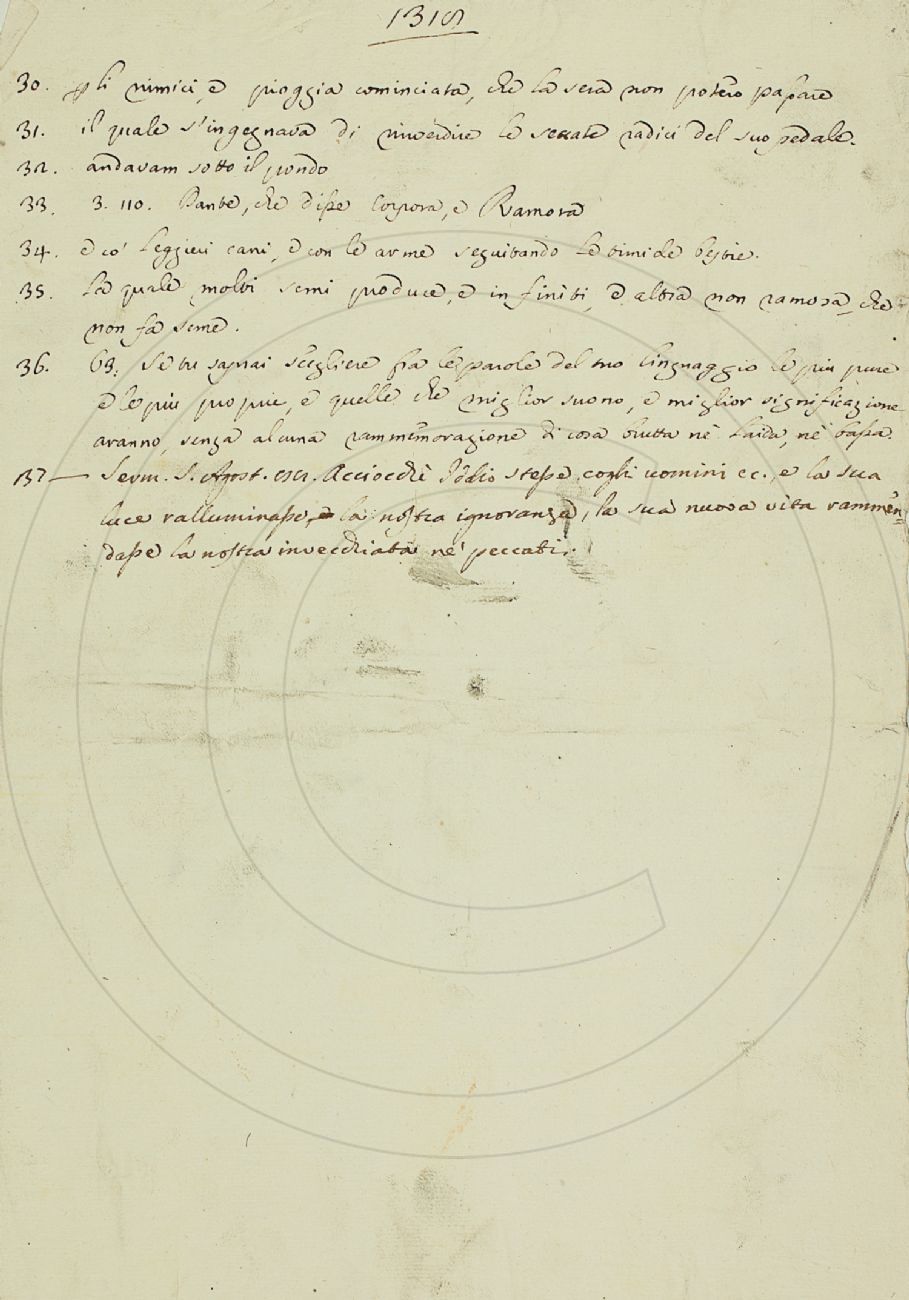 1318
30. p li nimici, e pioggia cominciata, che la sera non potero passare
31. il quale s'ingegnava di rinverdire le seccate radici del suo pedale.
32. andavam sotto il pondo
33. 3. 110. Dante, che disse Corpora, e Ramora
34. e co' leggieri cani, e con le arme seguitando le timide bestie.
35. La quale molti semi produce, e infiniti, e altra non ramosa, che
non fa seme.
36. 63. Se tu saprai scegliere fra le parole del tuo linguaggio le più pure
e le più proprie, e quelle che miglior suono, e miglior significazione
aranno, senza alcuna rammemorazione di cosa brutta nè laida, nè bassa.
137— Serm. S. Agost. Acciocchè Iddio stesse cogli uomini ec., e la sua
luce ralluminasse, la nostra ignoranza, la sua nuova vita rammen=
dasse la nostra invecchiata ne' peccati.